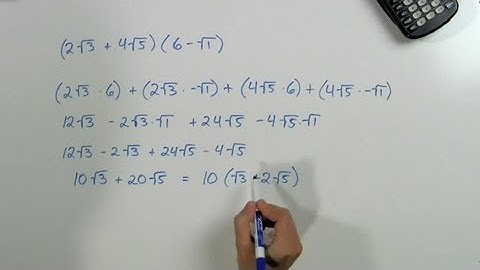 (2√3 + 4√5)(6 - √1)
(2√3 · 6) + (2√3 · -√1) + (4√5 · 6) + (4√5 · -√1)
12√3 - 2√3·√1 + 24√5 - 4√5·√1
12√3 - 2√3 + 24√5 - 4√5
10√3 + 20√5 = 10(√3 + 2√5)